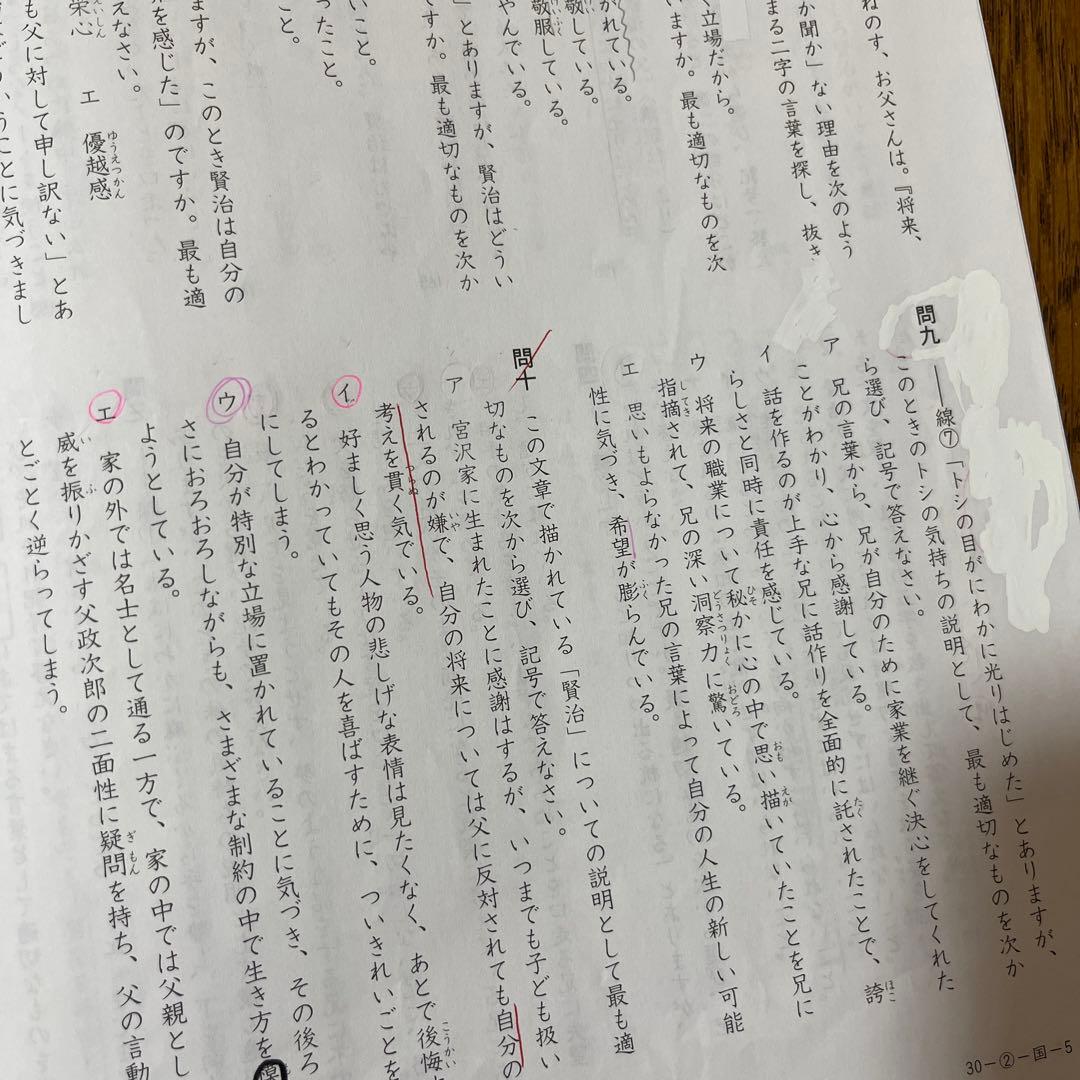 ねのす、お父さんは。『将来、
か聞か」ない理由を次のよう
まる二字の言葉を探し、抜き
く立場だから。
いますか。最も適切なものを次
かれている。
敬服している。
やんでいる。
」とありますが、賢治はどうい
ですか。最も適切なものを次か
いこと。
ったこと。
ますが、このとき賢治は自分の
を感じた」のですか。最も適
えなさい。
栄心 エ 優越感
も父に対して申し訳ない」とあ
うことに気づきまし
問九 ――線⑦「トシの目がにわかに光りはじめた」とありますが、
このときのトシの気持ちの説明として、最も適切なものを次か
ら選び、記号で答えなさい。
ア 兄の言葉から、兄が自分のために家業を継ぐ決心をしてくれた
ことがわかり、心から感謝している。
イ 話を作るのが上手な兄に話作りを全面的に託されたことで、誇
らしさと同時に責任を感じている。
ウ 将来の職業について秘かに心の中で思い描いていたことを兄に
指摘されて、兄の深い洞察力に驚いている。
エ 思いもよらなかった兄の言葉によって自分の人生の新しい可能
性に気づき、希望が膨らんでいる。
問十 この文章で描かれている「賢治」についての説明として最も適
切なものを次から選び、記号で答えなさい。
ア 宮沢家に生まれたことに感謝はするが、いつまでも子ども扱い
されるのが嫌で、自分の将来については父に反対されても自分の
考えを貫く気でいる。
イ 好ましく思う人物の悲しげな表情は見たくなく、あとで後悔
るとわかっていてもその人を喜ばすために、ついきれいごとを
にしてしまう。
ウ 自分が特別な立場に置かれていることに気づき、その後ろ
さにおろおろしながらも、さまざまな制約の中で生き方を
ようとしている。
エ 家の外では名士として通る一方で、家の中では父親とし
威を振りかざす父政次郎の二面性に疑問を持ち、父の言動
とごとく逆らってしまう。
30－②－国－5